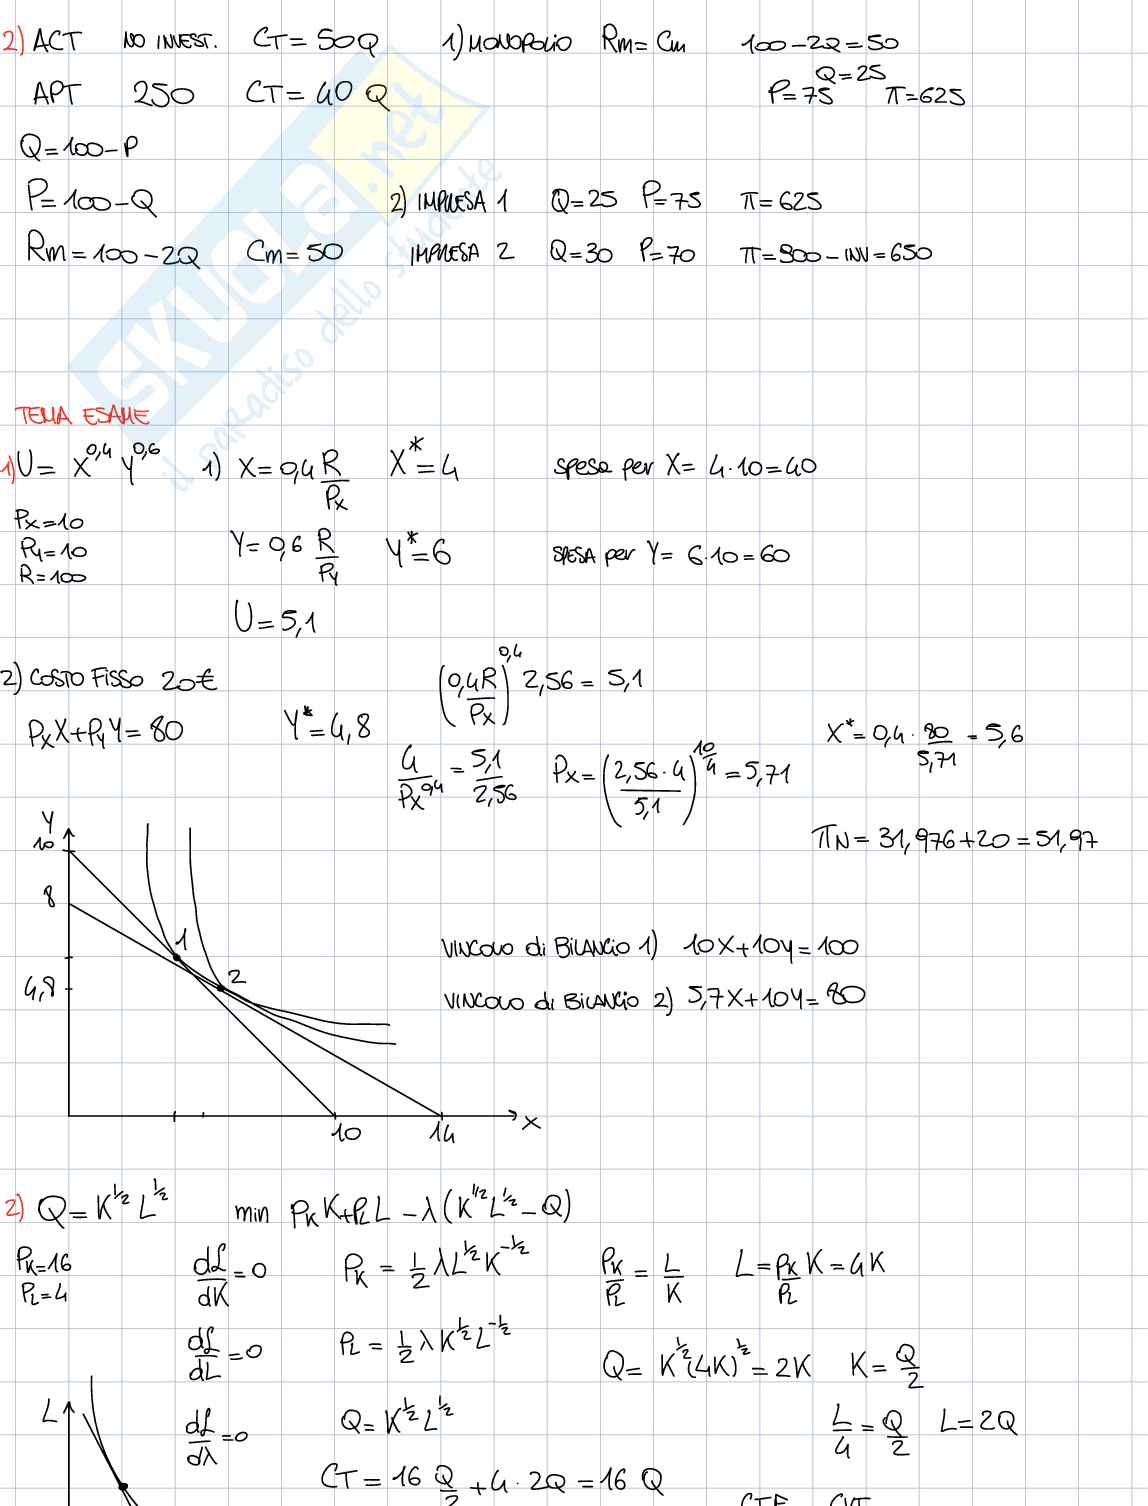 2) ACT NO INVEST. CT = 50Q 1) MONOPOLIO Rm = Cm 100 - 2Q = 50
Q = 25
APT 250 CT = 40 Q P = 75 π = 625
Q = 100 - P
P = 100 - Q 2) IMPRESA 1 Q = 25 P = 75 π = 625
Rm = 100 - 2Q Cm = 50 IMPRESA 2 Q = 30 P = 70 π = 900 - INV = 650
SKUOLA.net
il paradiso dello studente
TEMA ESAME
1) U = X^0,4 Y^0,6 1) X = 0,4 R/Px X* = 4 spesa per X = 4·10 = 40
Px = 10
Py = 10 Y = 0,6 R/Py Y* = 6 SPESA per Y = 6·10 = 60
R = 100
U = 5,1
2) COSTO FISSO 20€ (0,4R/Px)^0,4 2,56 = 5,1
PxX + PyY = 80 Y* = 4,8 X* = 0,4 · 80/5,71 = 5,6
4/Px^0,4 = 5,1/2,56 Px = (2,56·4/5,1)^10/4 = 5,71
πN = 31,976 + 20 = 51,97
Y
10
8
1
2
4,8
10
14
X
VINCOLO di BILANCIO 1) 10X + 10Y = 100
VINCOLO di BILANCIO 2) 5,7X + 10Y = 80
2) Q = K^1/2 L^1/2 min PK K + PL L - λ(K^1/2 L^1/2 - Q)
PK = 16 dℒ/dK = 0 PK = 1/2 λ L^1/2 K^-1/2 PK/PL = L/K L = PK/PL K = 4K
PL = 4
dℒ/dL = 0 PL = 1/2 λ K^1/2 L^-1/2 Q = K^1/2 (4K)^1/2 = 2K K = Q/2
L dℒ/dλ = 0 Q = K^1/2 L^1/2 L/4 = Q/2 L = 2Q
CT = 16 Q/2 + 4 · 2Q = 16 Q